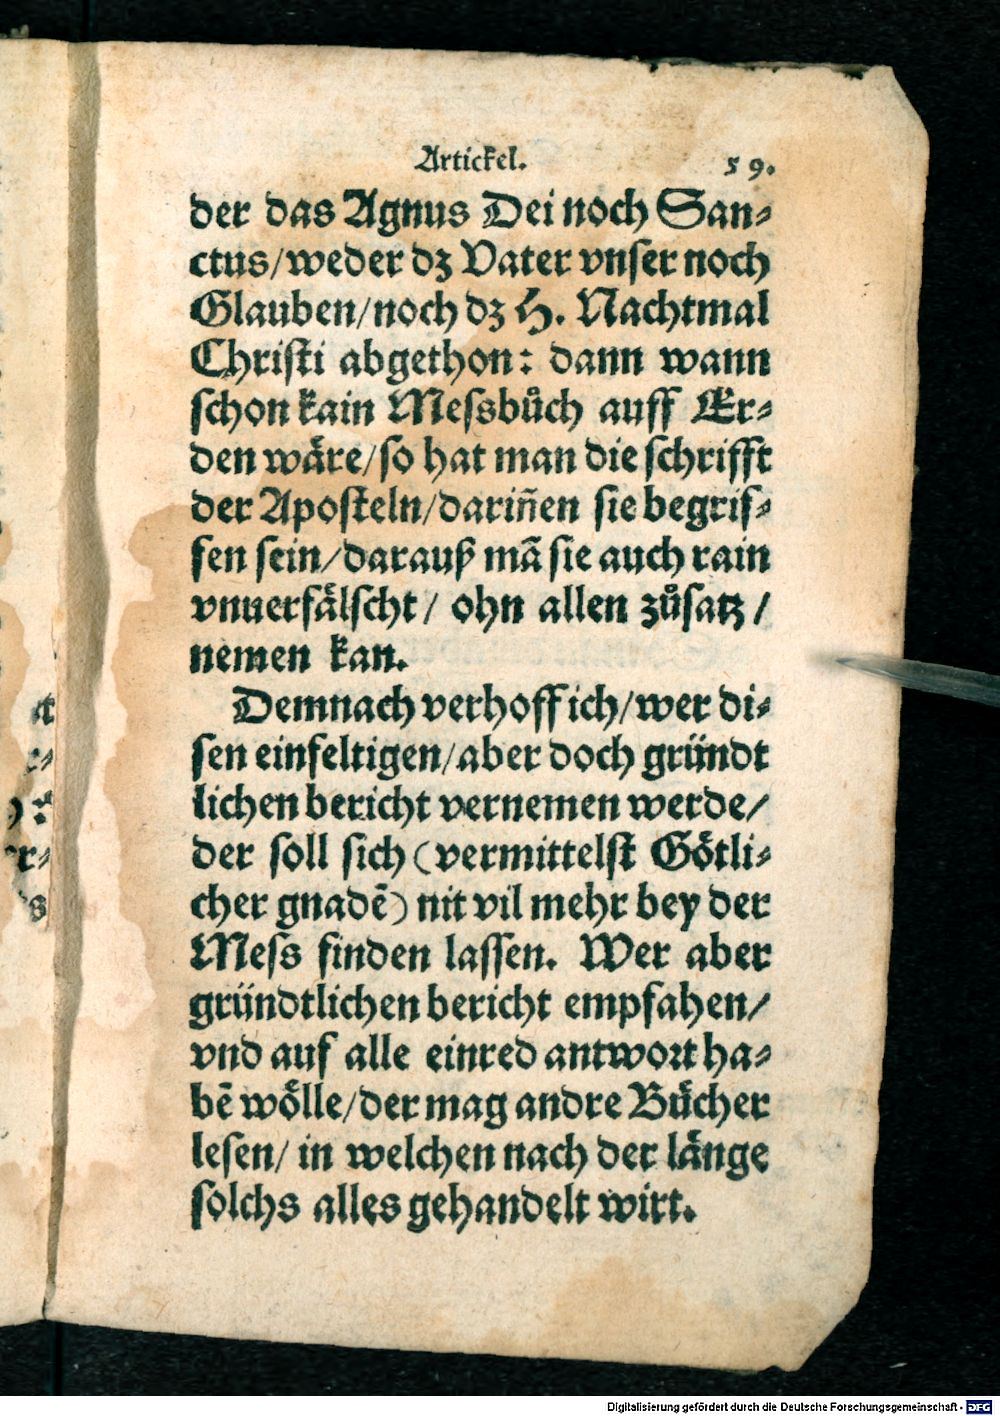 Artickel. 59.
der das Agnus Dei noch San⸗
ctus/weder dz Vater vnser noch
Glauben/noch dz H. Nachtmal
Christi abgethon: dann wann
schon kain Messbůch auff Er⸗
den wäre/so hat man die schrifft
der Aposteln/dariñen sie begrif⸗
fen sein/darauß mã sie auch rain
vnuerfälscht/ ohn allen zůsatz/
nemen kan.
Demnach verhoff ich/wer di⸗
sen einfeltigen/aber doch gründt
lichen bericht vernemen werde/
der soll sich (vermittelst Götli⸗
cher gnadẽ) nit vil mehr bey der
Mess finden lassen. Wer aber
gründtlichen bericht empfahen/
vnd auf alle einred antwort ha⸗
bẽ wölle/der mag andre Bücher
lesen/ in welchen nach der länge
solchs alles gehandelt wirt.
Digitalisierung gefördert durch die Deutsche Forschungsgemeinschaft - DFG